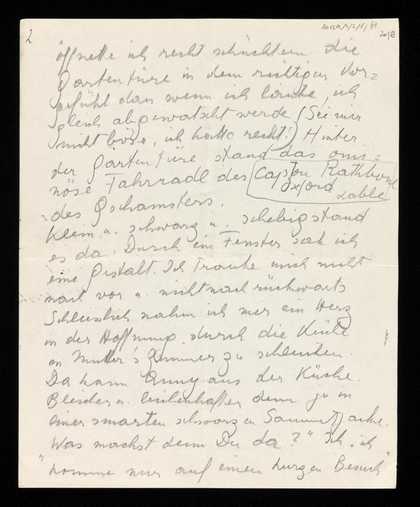 2
öffnete ich recht schüchtern die
Gartentüre in dem richtigen Vor=
gefühl dass wenn ich läute, ich
gleich abgewatscht werde (Sei mir
nicht böse, ich hatte recht!) Hinter
der Gartentüre stand das omi=
nöse Fahrradl des
des Gschamsters.
Klein u. schwarz u. schebig stand
es da. Durch ein Fenster sah ich
eine Gestalt. Ich traute mich nicht
nach vor u. nicht nach rückwärts
Schliesslich nahm ich mir ein Herz
in der Hoffnung durch die Küche
in Mutter's Zimmer zu schleichen.
Da kam Anny aus der Küche.
Bleicher u. denn je in
einer smarten schwarzen Sammetjacke.
"Was machst denn Du da?" Ich: ich
"komme nur auf einen kurzen Besuch"